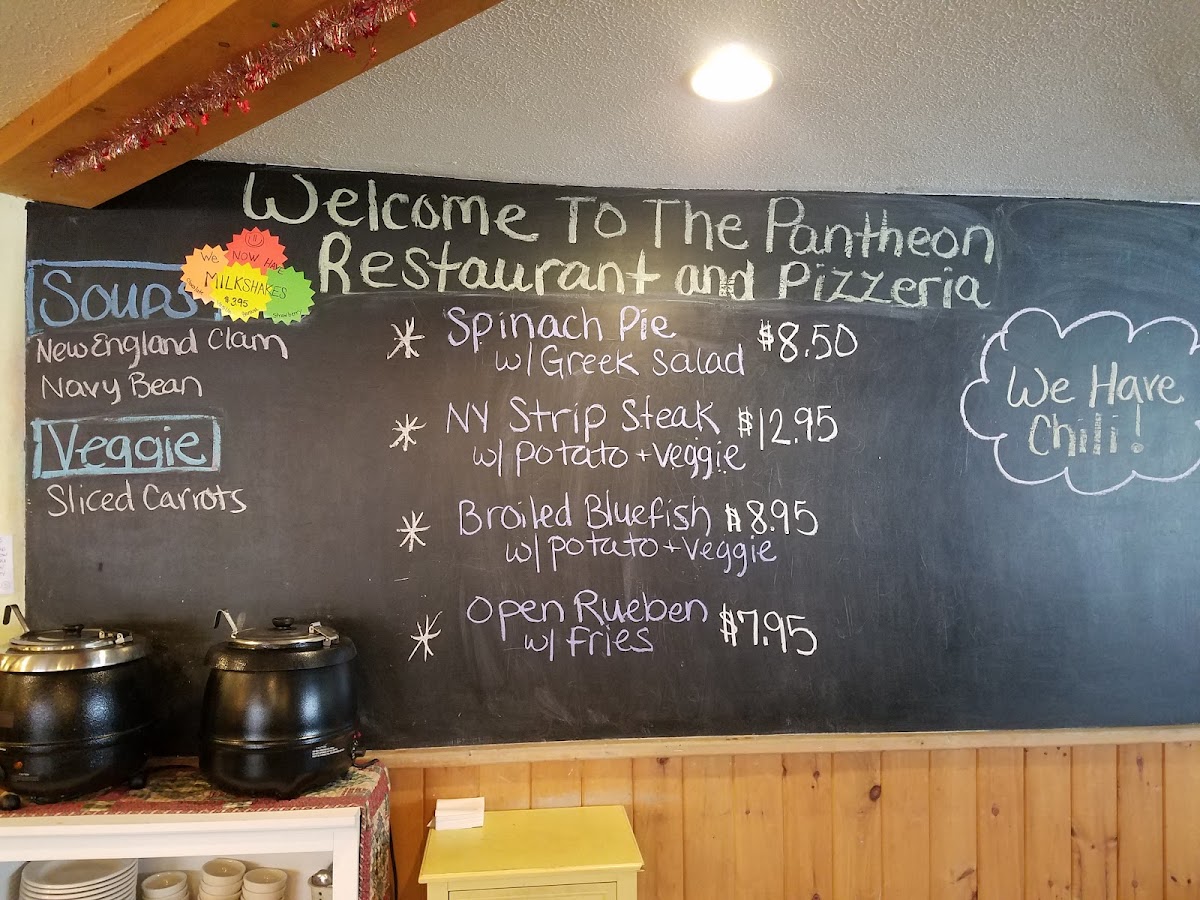 Welcome To The Pantheon
Restaurant and Pizzeria
We NOW HAVE
MILKSHAKES
$3.95
Strawberry
Soups
New England Clam
Navy Bean
Veggie
Sliced Carrots
Spinach Pie $8.50
w/ Greek Salad
NY Strip Steak $12.95
w/ potato + veggie
Broiled Bluefish $8.95
w/ potato + veggie
Open Rueben $7.95
w/ fries
We Have
Chili!